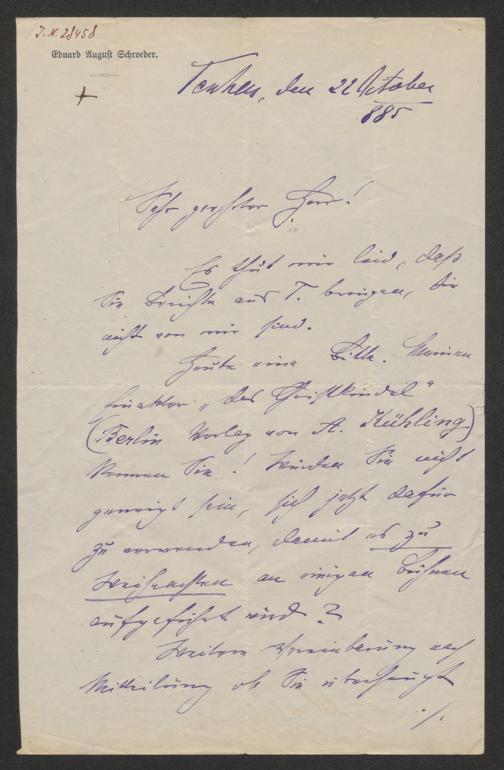 J.N. 28458
Eduard August Schroeder.
Teschen, den 22 October
885
Sehr geehrter Herr!
Es thut mir leid, daß
Sie Berichte aus T. bringen, die
nicht von mir sind.
Heute eine Bitte. Meinen
Einakter „Das Christkindel"
(Berlin Verlag von A. Kühling)
kennen Sie! Würden Sie nicht
geneigt sein, sich jetzt dafür
zu verwenden, damit es zu
Weihnachten an einigen Bühnen
aufgeführt wird?
Weitere Vereinbarung nach
Mitteilung ob Sie überhaupt
./.